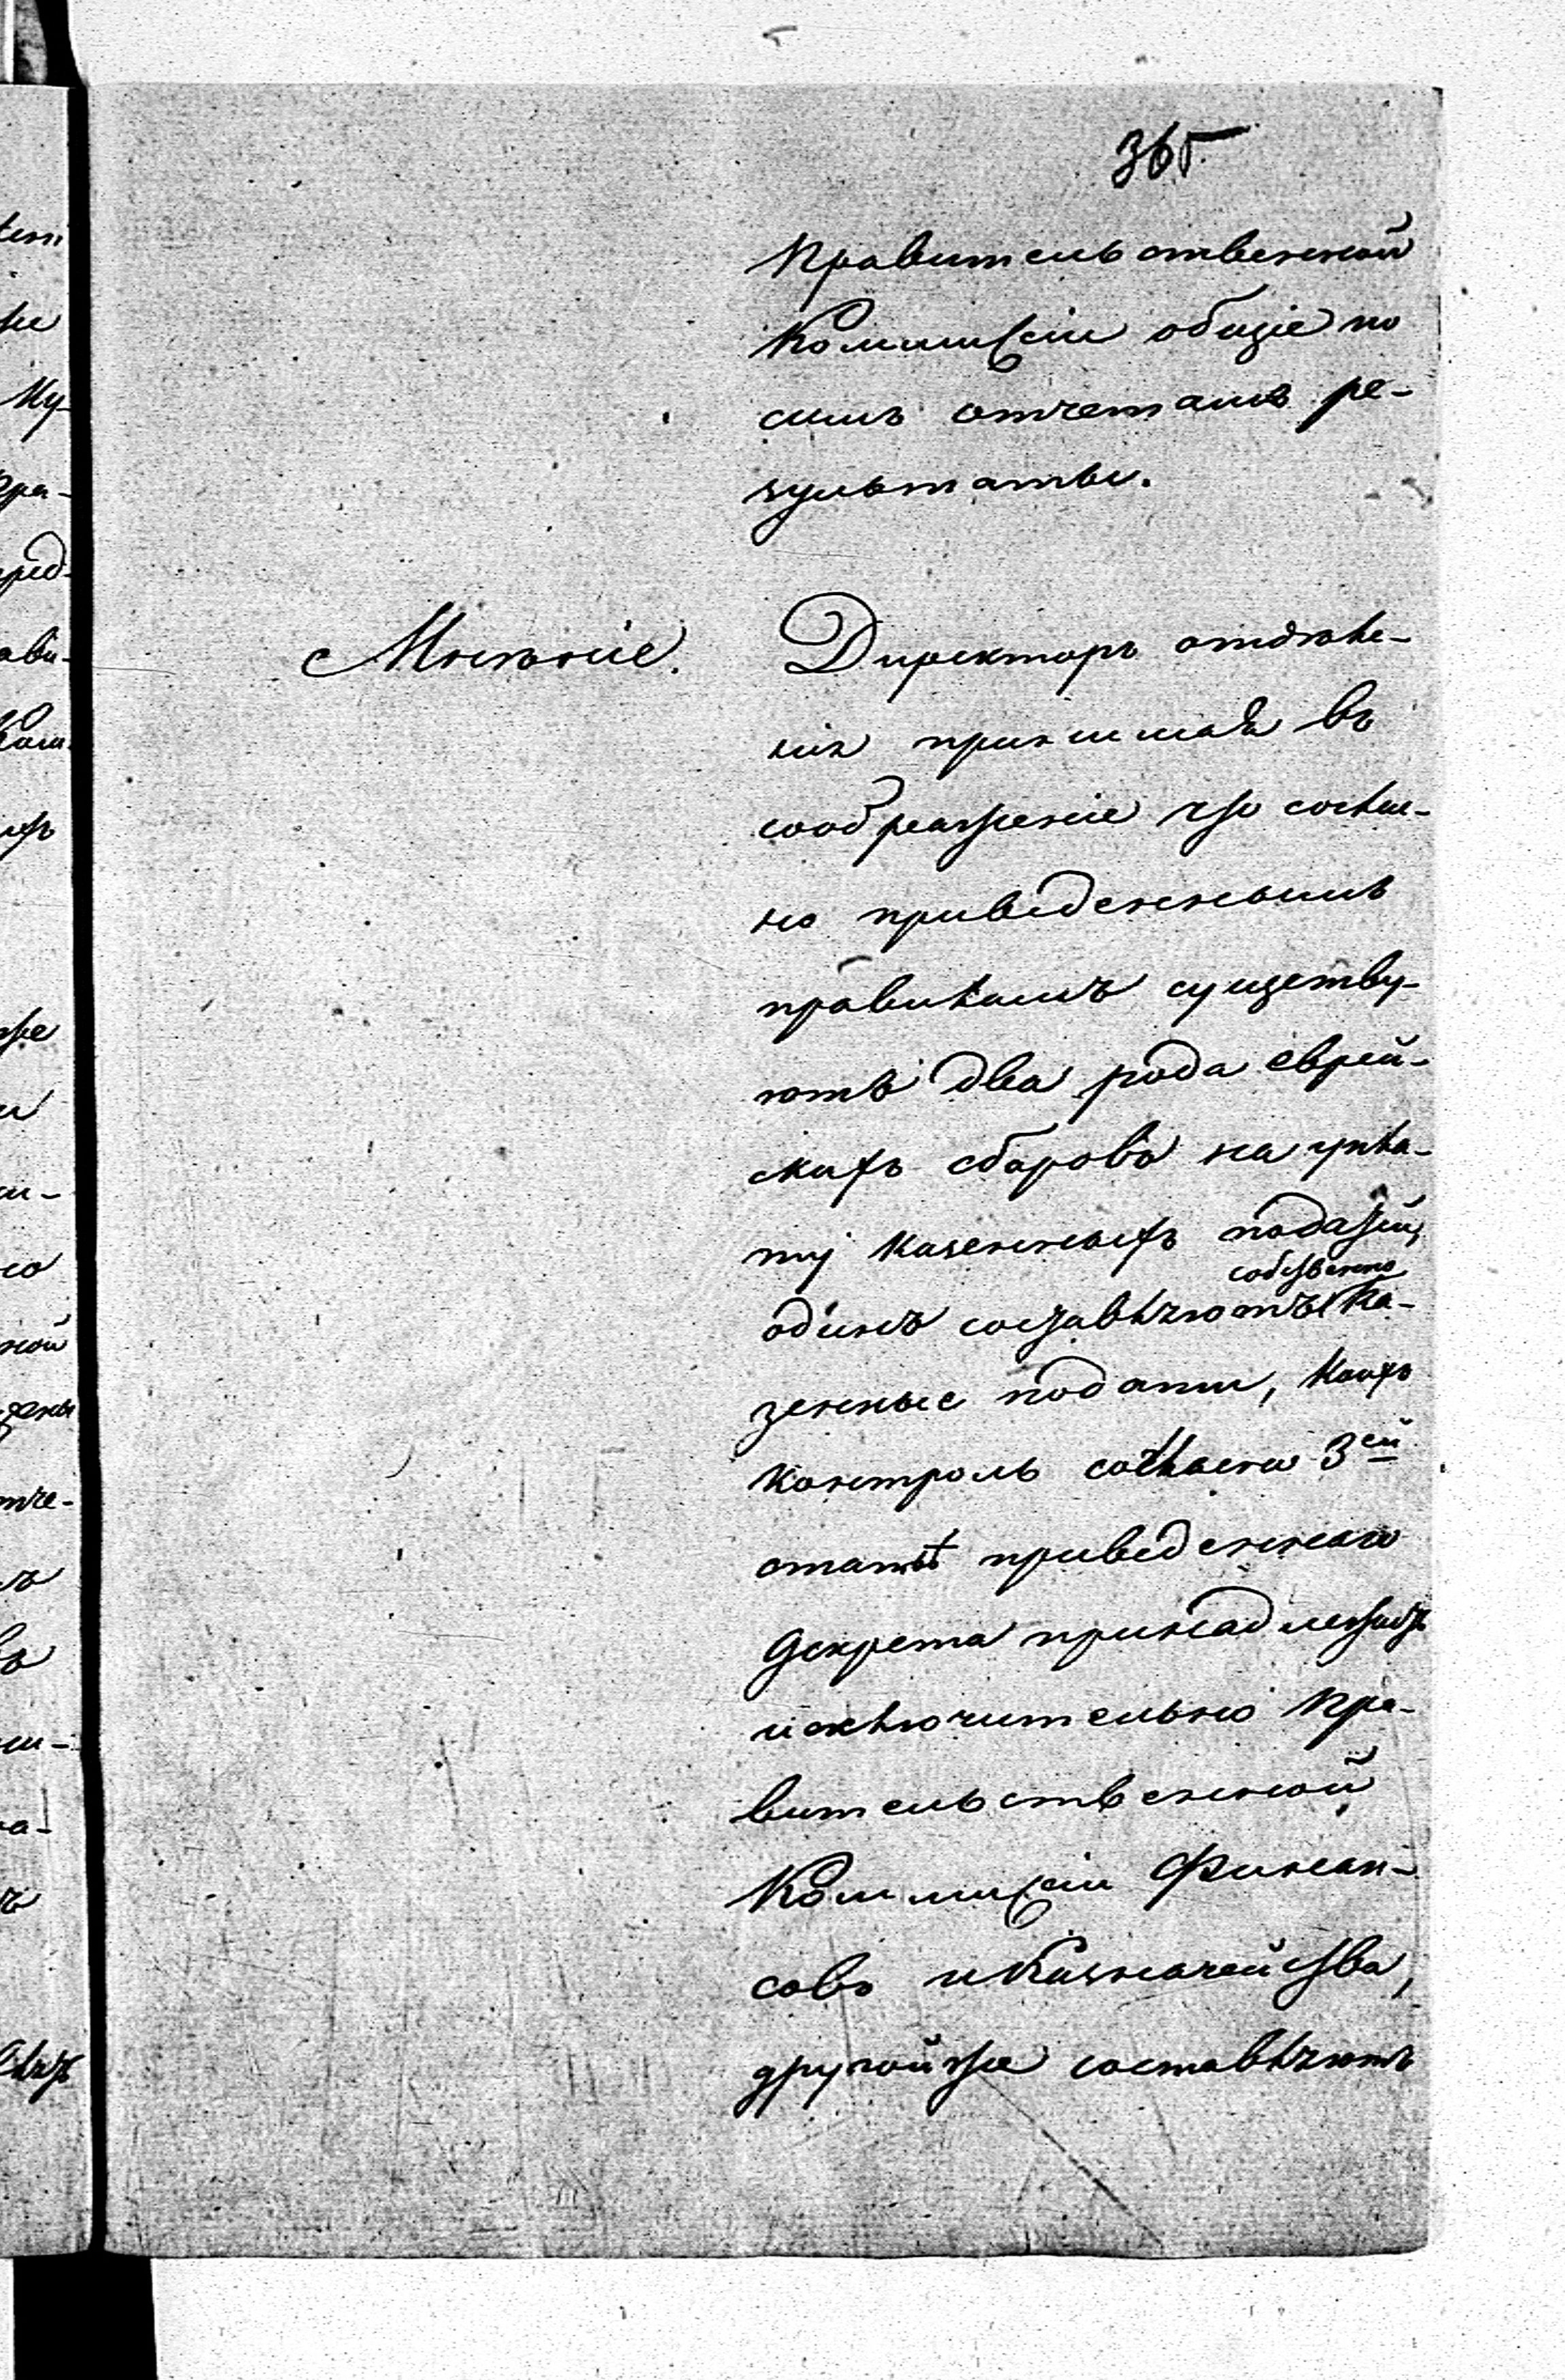 365.
Правительственной
Коммиссіи общіе по
симъ отчетамъ ре-
зультаты.
Мнѣніе.
Директоръ отдѣле-
нія принимая въ
соображеніе что соглас-
но приведеннымъ
правиламъ существу-
ютъ два рода еврей-
скихъ сборовъ на упла-
ту казенныхъ податей,
собственно
одинъ составляютъ ка-
зенные подати, коихъ
контроль согласно 3ей
статьѣ приведеннаго
декрета принадлежитъ
исключительно Пра-
вительственной
Коммиссіи Финан-
совъ и Казначейства,
другой же составляютъ